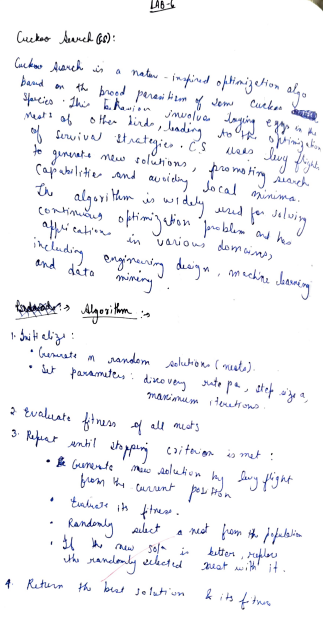 LAB-6
Cuckoo Search (CS):
Cuckoo Search is a nature-inspired optimization algo
based on the brood parasitism of some cuckoo
species. This behavior involves laying eggs in the
nests of other birds, leading to the optimization
of survival strategies. C.S uses levy flights
to generate new solutions, promoting search
capabilities and avoiding local minima.
The algorithm is widely used for solving
continuous optimization problem and has
applications in various domains,
including engineering design, machine learning
and data mining.
Algorithm :→
1. Initialize :
• Generate n random solutions (nests).
• Set parameters: discovery rate pa, step size a,
maximum iterations.
2. Evaluate fitness of all nests
3. Repeat until stopping criterion is met :
• Generate new solution by levy flight
from the current position
• Evaluate its fitness.
• Randomly select a nest from the population
• If the new soln is better, replace
the randomly selected nest with it.
4. Return the best solution & its fitness